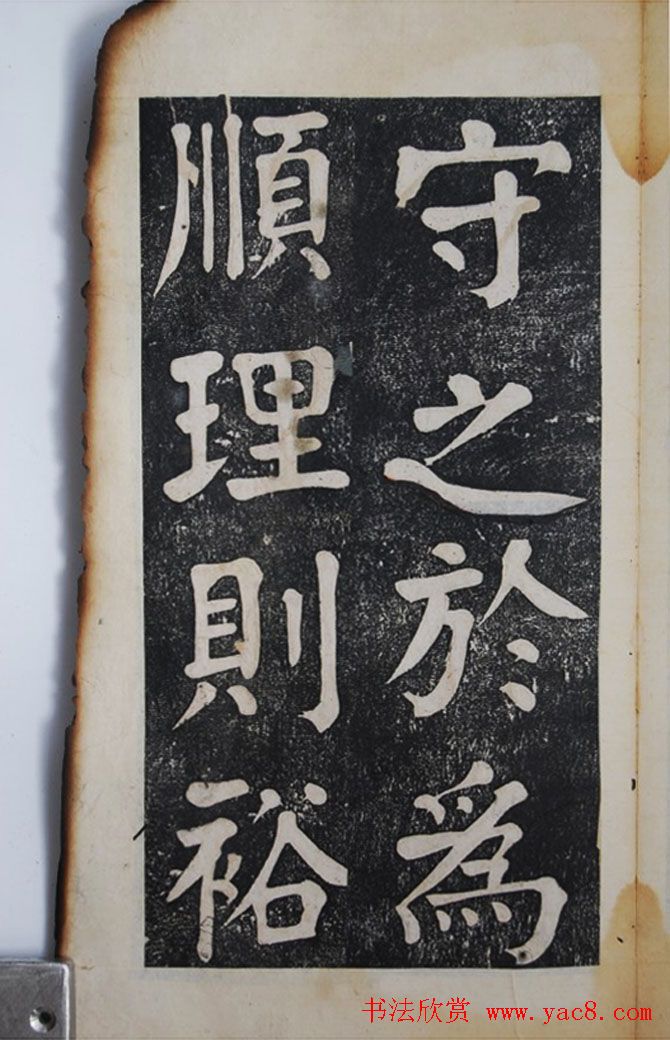 守之於為
順理則裕
书法欣赏 www.yac8.com